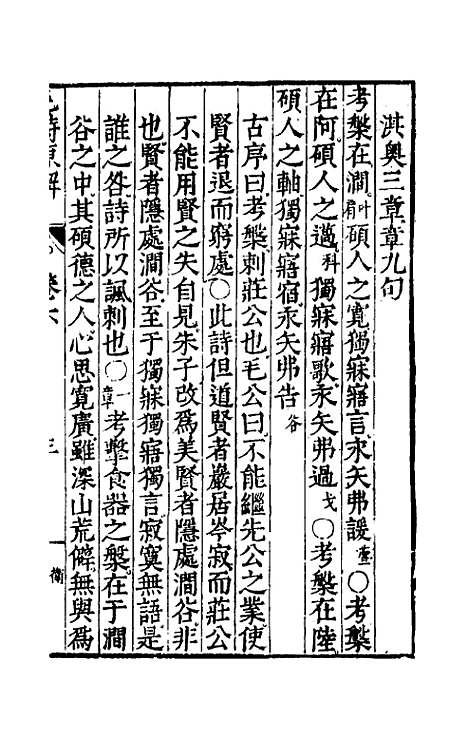 淇奥三章章九句
考槃在澗叶肩碩人之寛獨寐寤言永矢弗諼䖍〇考槃
在阿碩人之薖科獨寐寤歌永矢弗過戈〇考槃在陸
碩人之軸獨寐寤宿永矢弗告谷
古序曰考槃刺莊公也毛公曰不能繼先公之業使
賢者退而窮處〇此詩但道賢者巖居岑寂而莊公
不能用賢之失自見朱子改爲美賢者隱處澗谷非
也賢者隱處澗谷至于獨寐獨寤獨言寂寞無語是
誰之咎詩所以諷刺也〇一章考擊食器之槃在于澗
谷之中其碩德之人心思寛廣雖深山荒僻無與爲
詩原解
卷六
三
衛